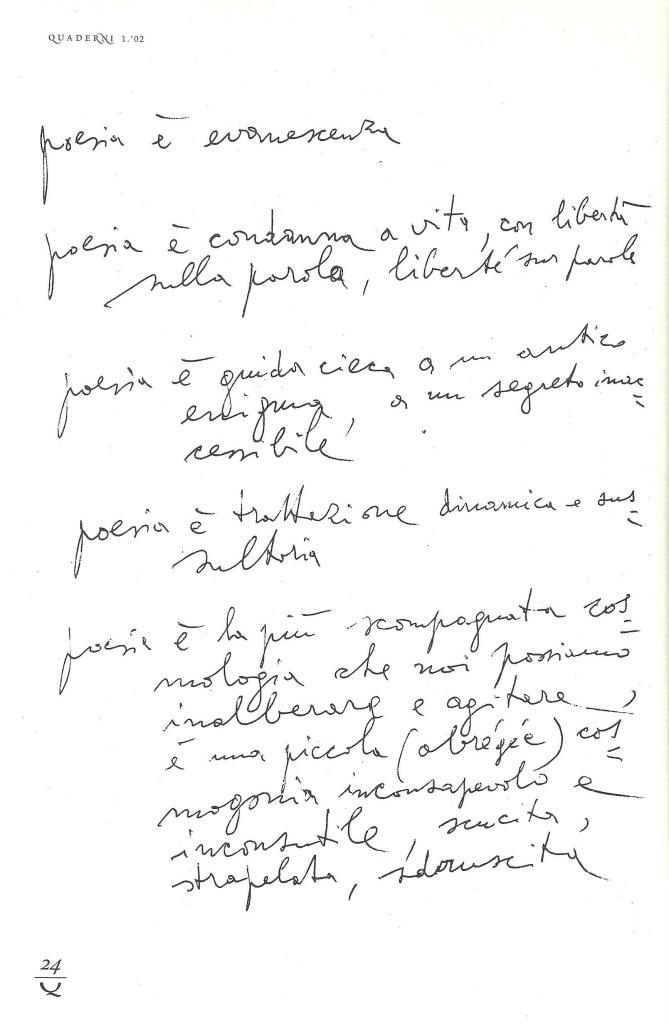 QUADERNI 1.'02
poesia è evanescenza
poesia è condanna a vita, con libertà
sulla parola, liberté sur parole
poesia è guida cieca a un antico
enigma, a un segreto inac=
cessibile
poesia è trattazione dinamica e sus=
sultoria
poesia è la più scompagnata cos=
mologia che noi possiamo
inalberare e agitare,
è una piccola (abrégée) cos=
mogonia inconsapevole e
inconsutile, scucita,
strapelata, sdruscita
24
Q